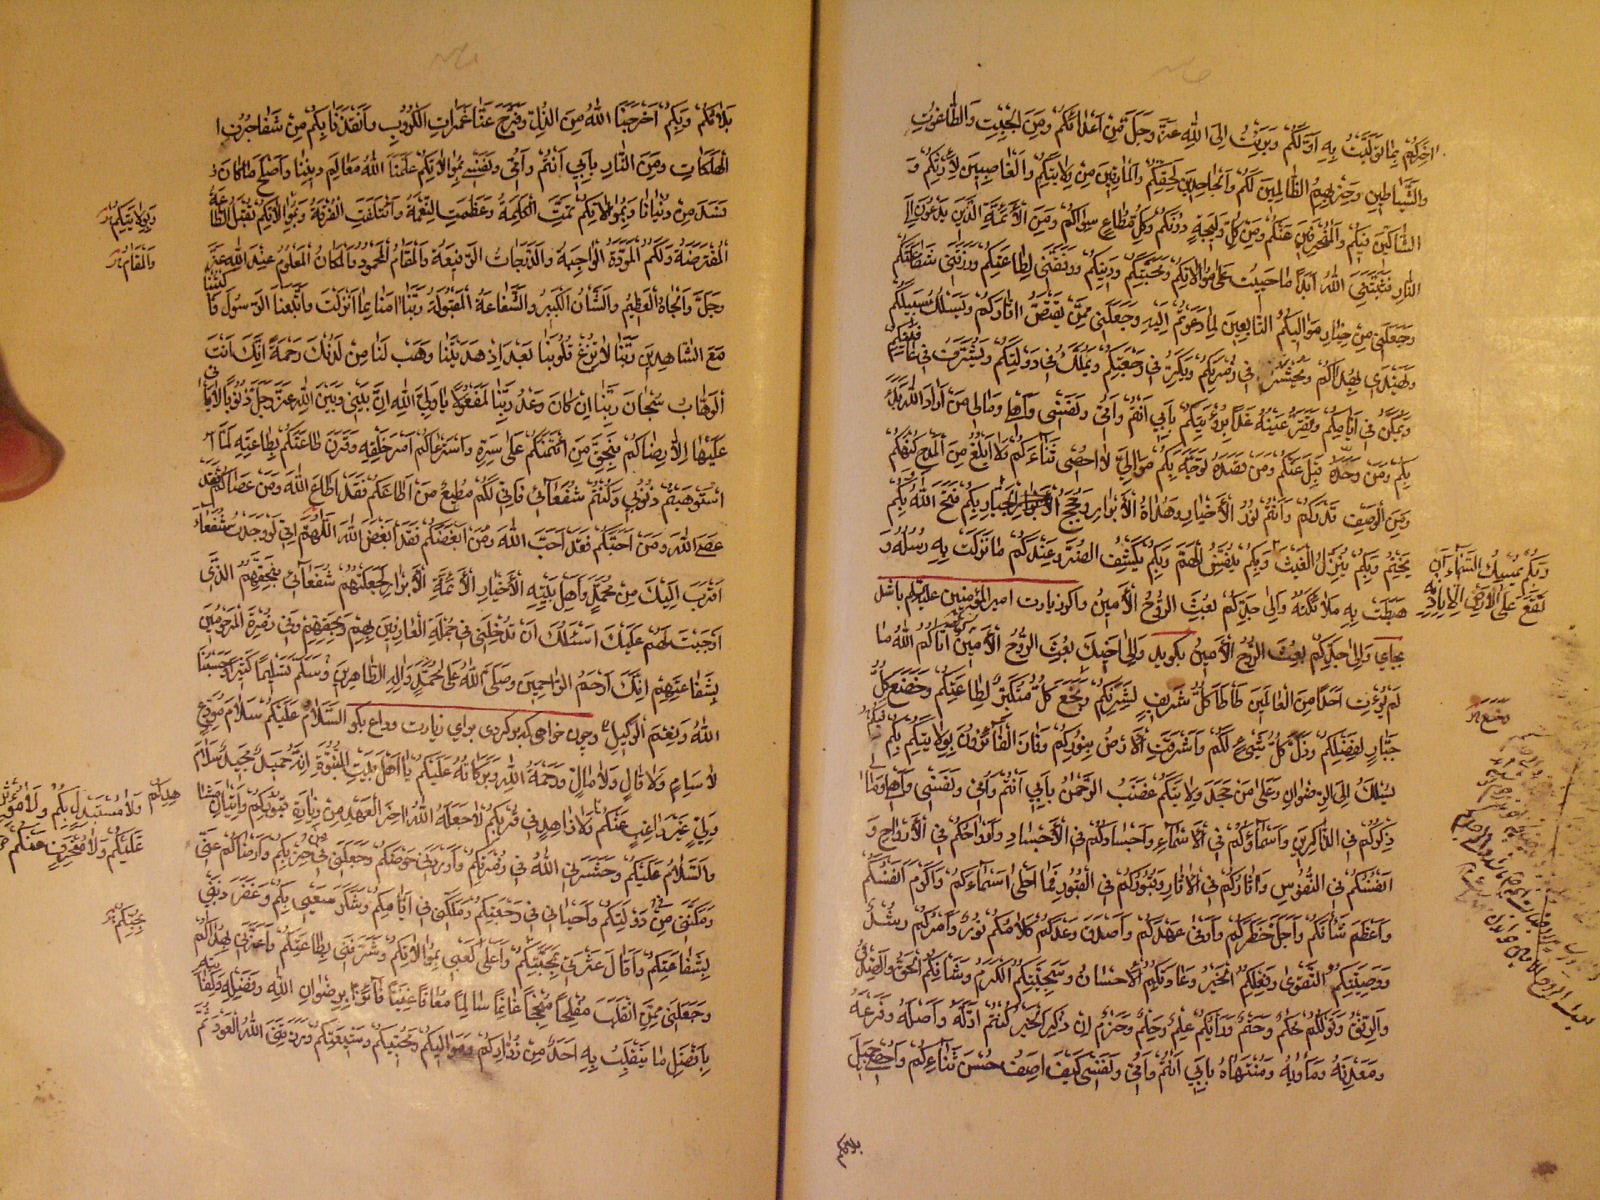 اخركم بما توليت به اولكم وبرئت الى الله عز وجل من اعدائكم ومن الجبت والطاغوت
والشياطين وحزبهم الظالمين لكم والجاحدين لحقكم والمارقين من ولايتكم والغاصبين لارثكم و
الشاكين فيكم والمنحرفين عنكم ومن كل وليجة دونكم وكل مطاع سواكم ومن الائمة الذين يدعون الى
النار فثبتنى الله ابدا ما حييت على موالاتكم ومحبتكم ودينكم ووفقنى لطاعتكم ورزقنى شفاعتكم
وجعلنى من خيار مواليكم التابعين لما دعوتم اليه وجعلنى ممن يقتص اثاركم ويسلك سبيلكم
ويهتدى بهداكم ويحشر فى زمرتكم ويكر فى رجعتكم ويملك فى دولتكم ويشرف فى عافيتكم
ويمكن فى ايامكم وتقر عينه غدا برؤيتكم بابى انتم وامى ونفسى واهلى ومالى من اراد الله بدأ
بكم ومن وحده قبل عنكم ومن قصده توجه بكم موالى لا احصى ثناءكم ولا ابلغ من المدح كنهكم
ومن الوصف قدركم وانتم نور الاخيار وهداة الابرار وحجج الجبار بكم فتح الله وبكم
يختم وبكم ينزل الغيث وبكم ينفس الهم وبكم يكشف الضر وعندكم ما نزلت به رسله و
وبكم يمسك السماء ان
تقع على الارض الا باذنه
هبطت به ملائكته والى جدكم بعث الروح الامين واكر زيارت امير المؤمنين عليه السلام باشد
بجاى والى جدكم بعث الروح الامين بكويد والى اخيك بعث الروح الامين اتاكم الله ما
لم يؤت احدا من العالمين طأطأ كل شريف لشرفكم وبخع كل متكبر لطاعتكم وخضع كل
جبار لفضلكم وذل كل شيء لكم واشرقت الارض بنوركم وفاز الفائزون بولايتكم بكم
يسلك الى الرضوان وعلى من جحد ولايتكم غضب الرحمن بابى انتم وامى ونفسى واهلى ومالى
ذكركم فى الذاكرين واسماؤكم فى الاسماء واجسادكم فى الاجساد وارواحكم فى الارواح و
انفسكم فى النفوس واثاركم فى الاثار وقبوركم فى القبور فما احلى اسماءكم واكرم انفسكم
واعظم شأنكم واجل خطركم واوفى عهدكم واصدق وعدكم كلامكم نور وامركم رشد
ووصيتكم التقوى وفعلكم الخير وعادتكم الاحسان وسجيتكم الكرم وشأنكم الحق والصدق
والرفق وقولكم حكم وحتم ورأيكم علم وحلم وحزم ان ذكر الخير كنتم اوله واصله وفرعه
ومعدنه ومأويه ومنتهاه بابى انتم وامى ونفسى كيف اصف حسن ثنائكم واحصى جميل
بلائكم
بلائكم وبكم اخرجنا الله من الذل وفرج عنا غمرات الكروب وانقذنا بكم من شفا جرف ا
لهلكات ومن النار بابى انتم وامى ونفسى بموالاتكم علمنا الله معالم ديننا واصلح ما كان
فسد من دنيانا وبموالاتكم تمت الكلمة وعظمت النعمة وائتلفت الفرقة وبموالاتكم تقبل الطاعة
المفترضة ولكم المودة الواجبة والدرجات الرفيعة والمقام المحمود والمكان المعلوم عند الله عز
وجل والجاه العظيم والشأن الكبير والشفاعة المقبولة ربنا امنا بما انزلت واتبعنا الرسول فاكتبنا
مع الشاهدين ربنا لا تزغ قلوبنا بعد اذ هديتنا وهب لنا من لدنك رحمة انك انت
الوهاب سبحان ربنا ان كان وعد ربنا لمفعولا يا ولى الله ان بينى وبين الله عز وجل ذنوبا لا يأتى
عليها الا رضاكم فبحق من ائتمنكم على سره واسترعاكم امر خلقه وقرن طاعتكم بطاعته لما
استوهبتم ذنوبى وكنتم شفعائى فانى لكم مطيع من اطاعكم فقد اطاع الله ومن عصاكم فقد
عصى الله ومن احبكم فقد احب الله ومن ابغضكم فقد ابغض الله اللهم انى لو وجدت شفعاء
اقرب اليك من محمد واهل بيته الاخيار الائمة الابرار لجعلتهم شفعائى فبحقهم الذى
اوجبت لهم عليك اسئلك ان تدخلنى فى جملة العارفين بهم وبحقهم وفى زمرة المرحومين
بشفاعتهم انك ارحم الراحمين وصلى الله على محمد واله الطاهرين وسلم تسليما كثيرا وحسبنا
الله ونعم الوكيل وچون خواهى كه بركردى براى زيارت وداع بكو السلام عليكم سلام مودع
لا سئم ولا قال ولا مال ورحمة الله وبركاته عليكم يا اهل بيت النبوة انه حميد مجيد سلام
ولى غير راغب عنكم ولا زاهد فى قربكم لا جعله الله اخر العهد من زيارة قبوركم واتيان مشا
والسلام عليكم وحشرنى الله فى زمرتكم واوردنى حوضكم وجعلنى فى حزبكم وارضاكم عنى
ومكننى من دولتكم واحيانى فى رجعتكم وملكنى فى ايامكم وشكر سعيى بكم وغفر ذنبى
بشفاعتكم واقال عثرتى بمحبتكم واعلى كعبى بموالاتكم وشرفنى بطاعتكم واعزنى بهداكم
وجعلنى ممن انقلب مفلحا منجحا غانما سالما معافا غنيا فائزا برضوان الله وفضله وكفايته
بافضل ما ينقلب به احد من زواركم ومواليكم ومحبيكم وشيعتكم ورزقنى الله العود ثم
وبولايتكم
والمقام
ولا مستبدل بكم ولا مؤثر
عليكم ولا منحرف عنكم
بحبكم